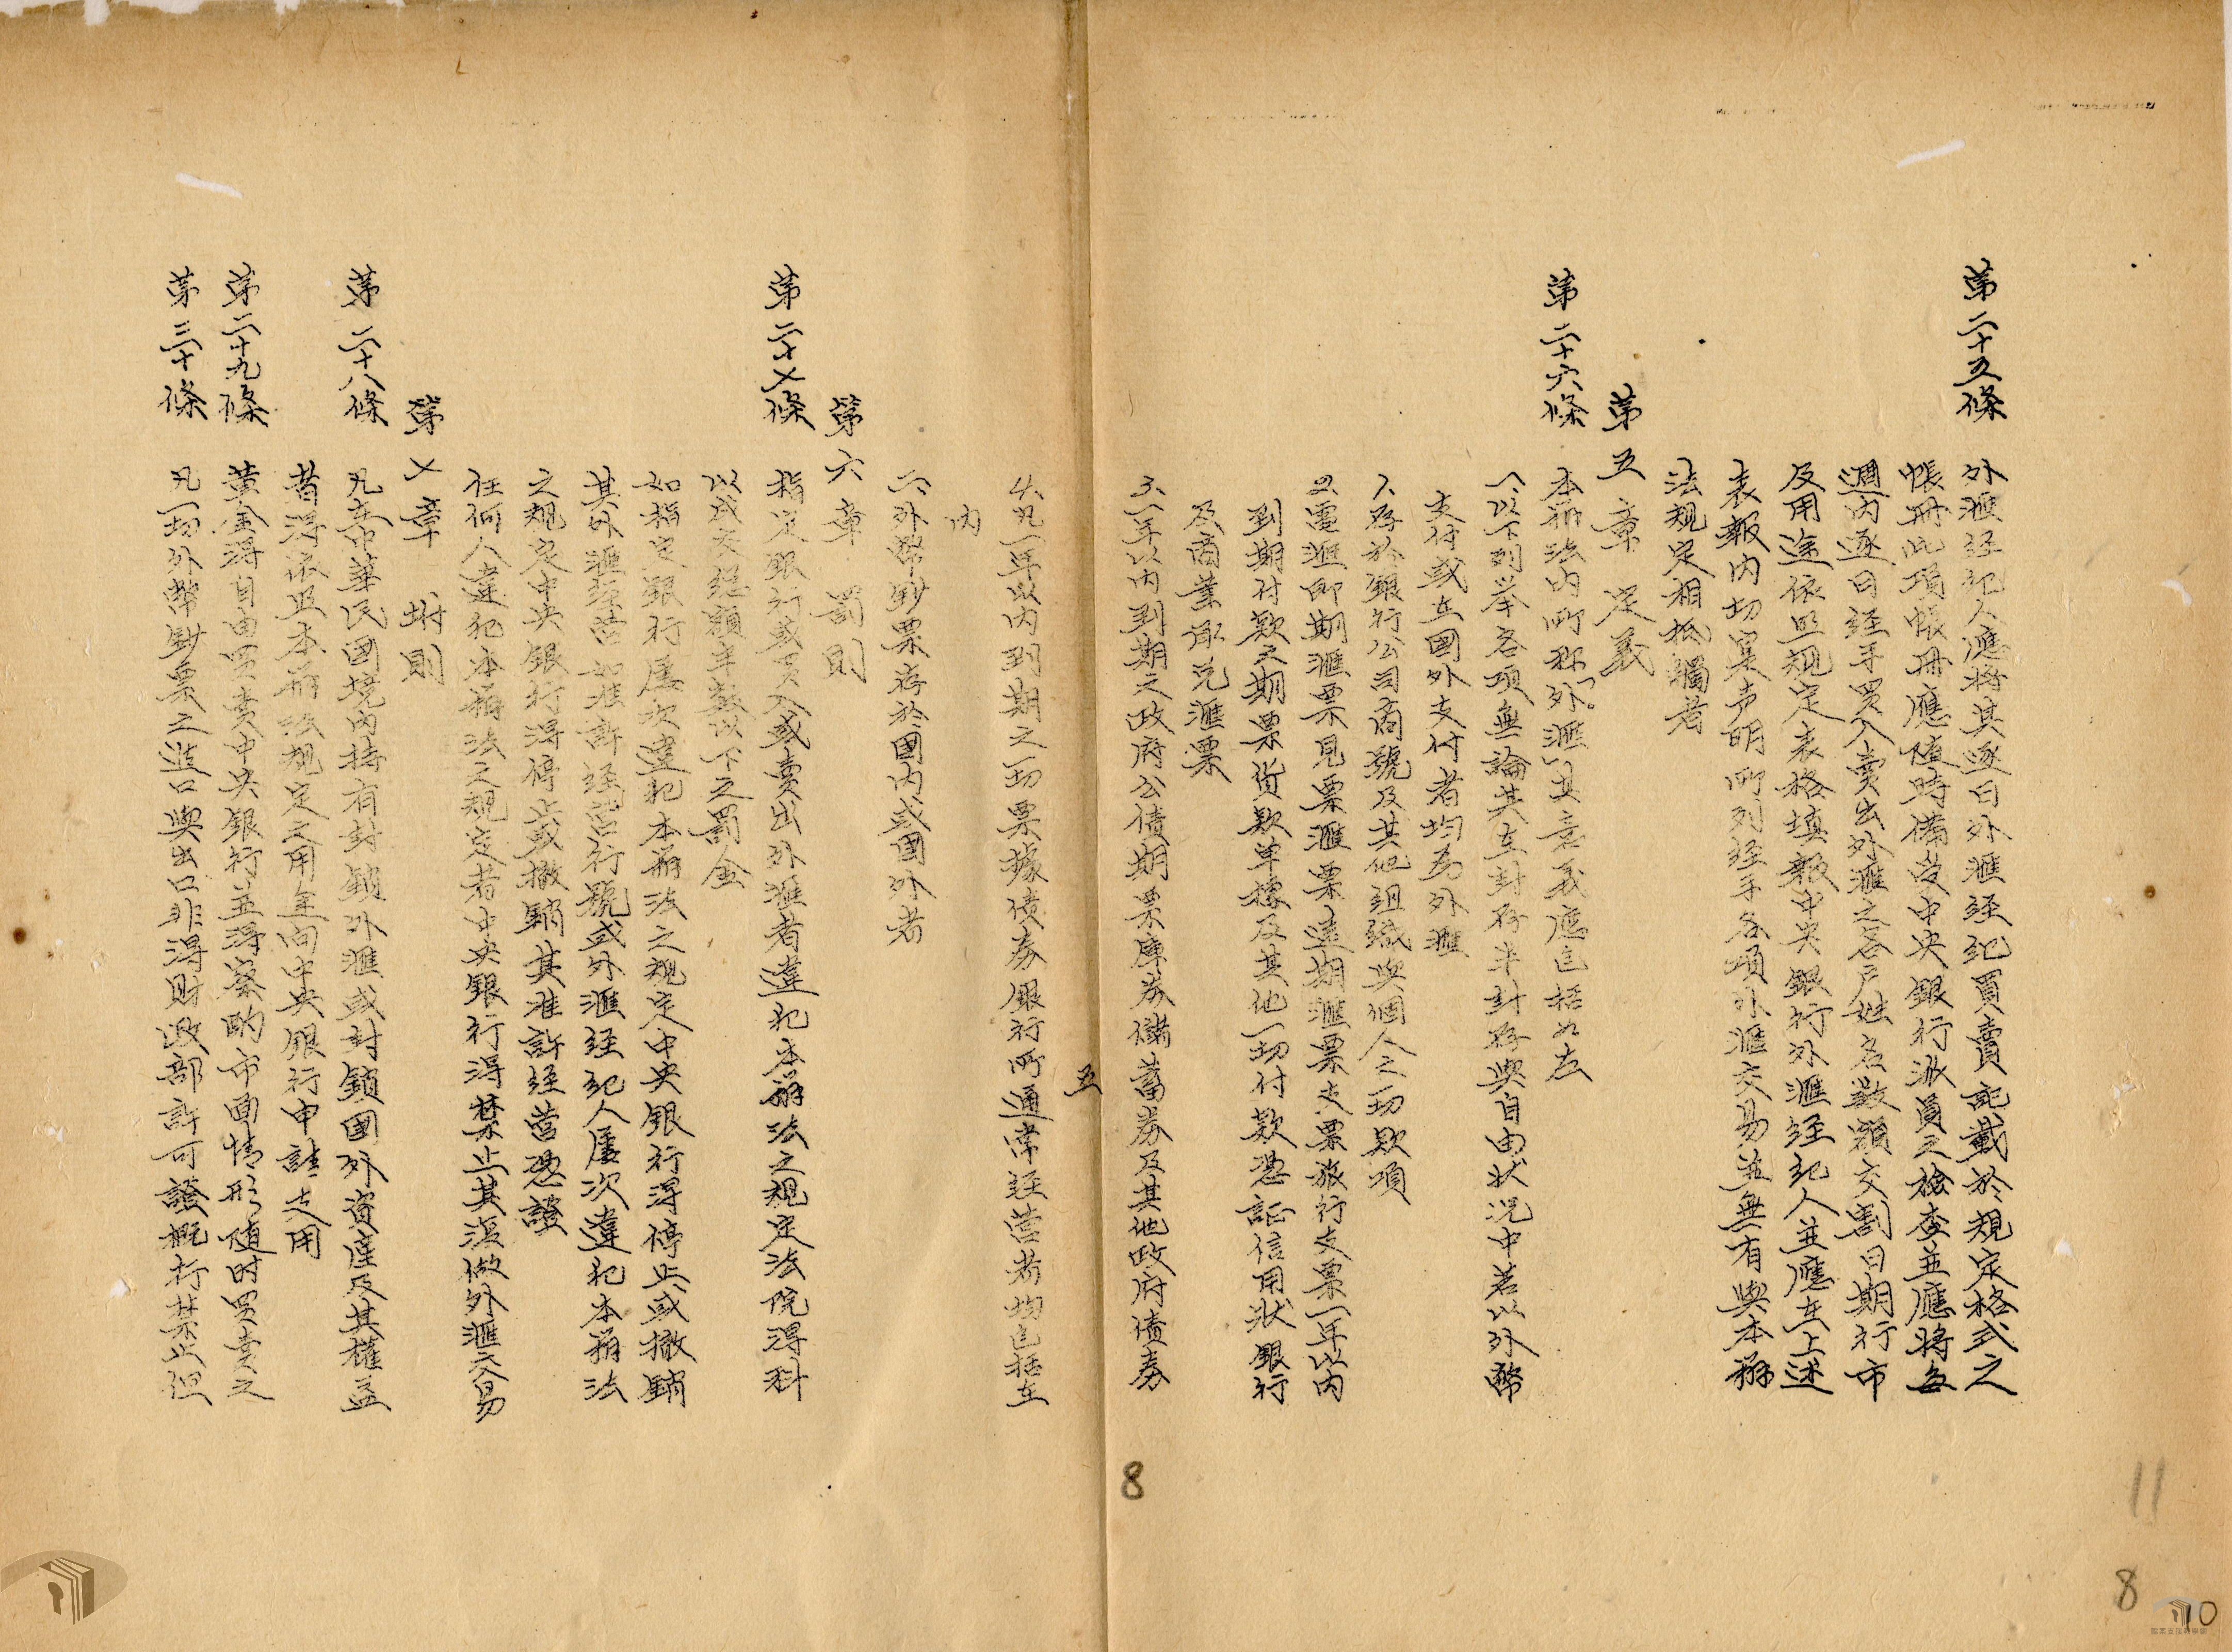 第二十五條 外滙经纪人應将其逐日外滙经纪買賣記載於規定格式之
帳冊此項帳冊應随時備受中央銀行派員之檢查並應將每
週内逐日经手買入賣出外滙之客戶姓名数額交割日期行市
及用途依照規定表格填報中央銀行外滙经纪人並應在上述
表報内切实声明所列经手各項外滙交易並無有與本辦
法規定相抵觸者
第五章 定義
第二十六條 本辦法内所称「外滙」其意義應包括如左
一、以下列举各項無論其在封存非封存與自由状况中若以外幣
支付或在國外支付者均为外滙
1、存於銀行公司商號及其他组織與個人之一切欵項
2、電滙即期滙票見票滙票遠期滙票支票旅行支票一年以内
到期付欵之期票貨欵单據及其他一切付欵憑証信用狀銀行
及商業承兌滙票
3、一年以内到期之政府公债期票庫券儲蓄券及其他政府债券
五
4、凡一年以内到期之一切票據债券銀行所通常经营者均包括在
内
二、外幣鈔票存於國内或國外者
第六章 罰則
第二十七條 指定銀行或買入或賣出外滙者違犯本辦法之規定法院得科
以成交總額半数以下之罰金
如指定銀行屡次違犯本辦法之規定中央銀行得停止或撤銷
其外滙经营如准許经营行號或外滙经纪人屡次違犯本辦法
之規定中央銀行得停止或撤銷其准許经营憑證
任何人違犯本辦法之規定者中央銀行得禁止其復做外滙交易
第七章 附則
第二十八條 凡在中華民國境内持有封鎖外滙或封鎖國外資產及其權益
者得依照本辦法規定之用途向中央銀行申請支用
第二十九條 黄金得自由買賣中央銀行並得察酌市面情形随时買賣之
第三十條 凡一切外幣鈔票之進口與出口非得財政部許可證概行禁止但
8
11
8
10